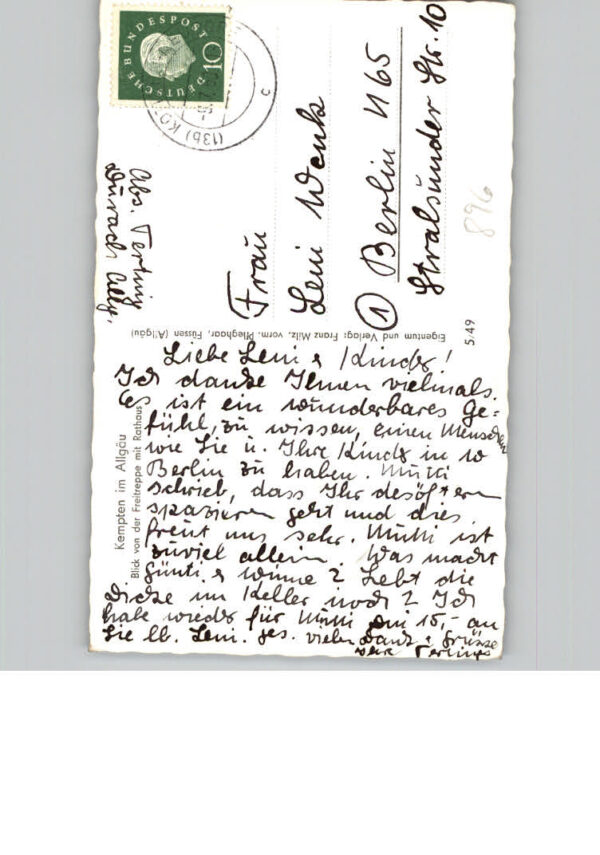 DEUTSCHE BUNDESPOST
10
(13b) KE
c
Abs. Terting
Durach Allg.
Frau
Leni Wenk
① Berlin N65
Stralsunder Str. 10
896
5/49
Eigentum und Verlag: Franz Milz, vorm. Pfleghaar, Füssen (Allgäu)
Kempten im Allgäu
Blick von der Freitreppe mit Rathaus
Liebe Leni & Kinder!
Ich danke Ihnen vielmals.
Es ist ein wunderbares Ge=
fühl, zu wissen, einen Menschen
wie Sie u. Ihre Kinder in
Berlin zu haben. Mutti
schrieb, dass Ihr desöftern
spazieren geht und dies
freut uns sehr. Mutti ist
zuviel allein. Was macht
Günti & ? Lebt die
Dicke im Keller noch? Ich
habe wieder für Mutti DM 15,- an
Sie lb. Leni. ges. vielen Dank & Grüsse
Ihre Tertings